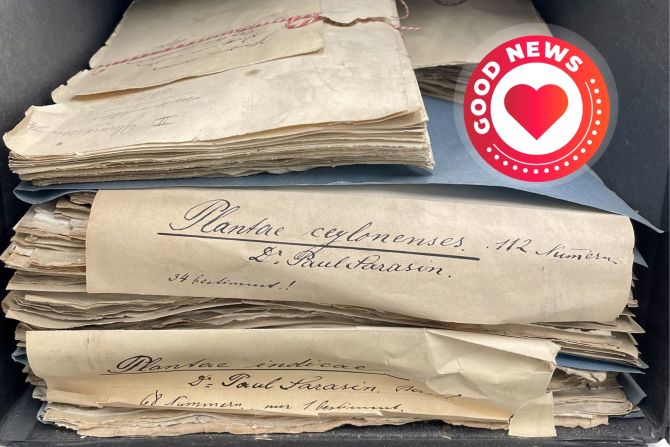 GOOD NEWS
II
Plantae ceylonenses. 112 Nummern.
Dr. Paul Sarasin.
34 bestimmt.!
Plantae indicae
Dr. Paul Sarasin.
68 Nummern, nur 1 bestimmt.